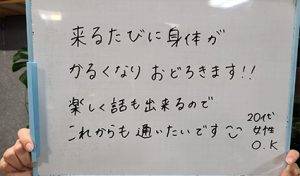 来るたびに身体が
かるくなり おどろきます!!
楽しく話も出来るので
これからも通いたいです
20代
女性
O.K